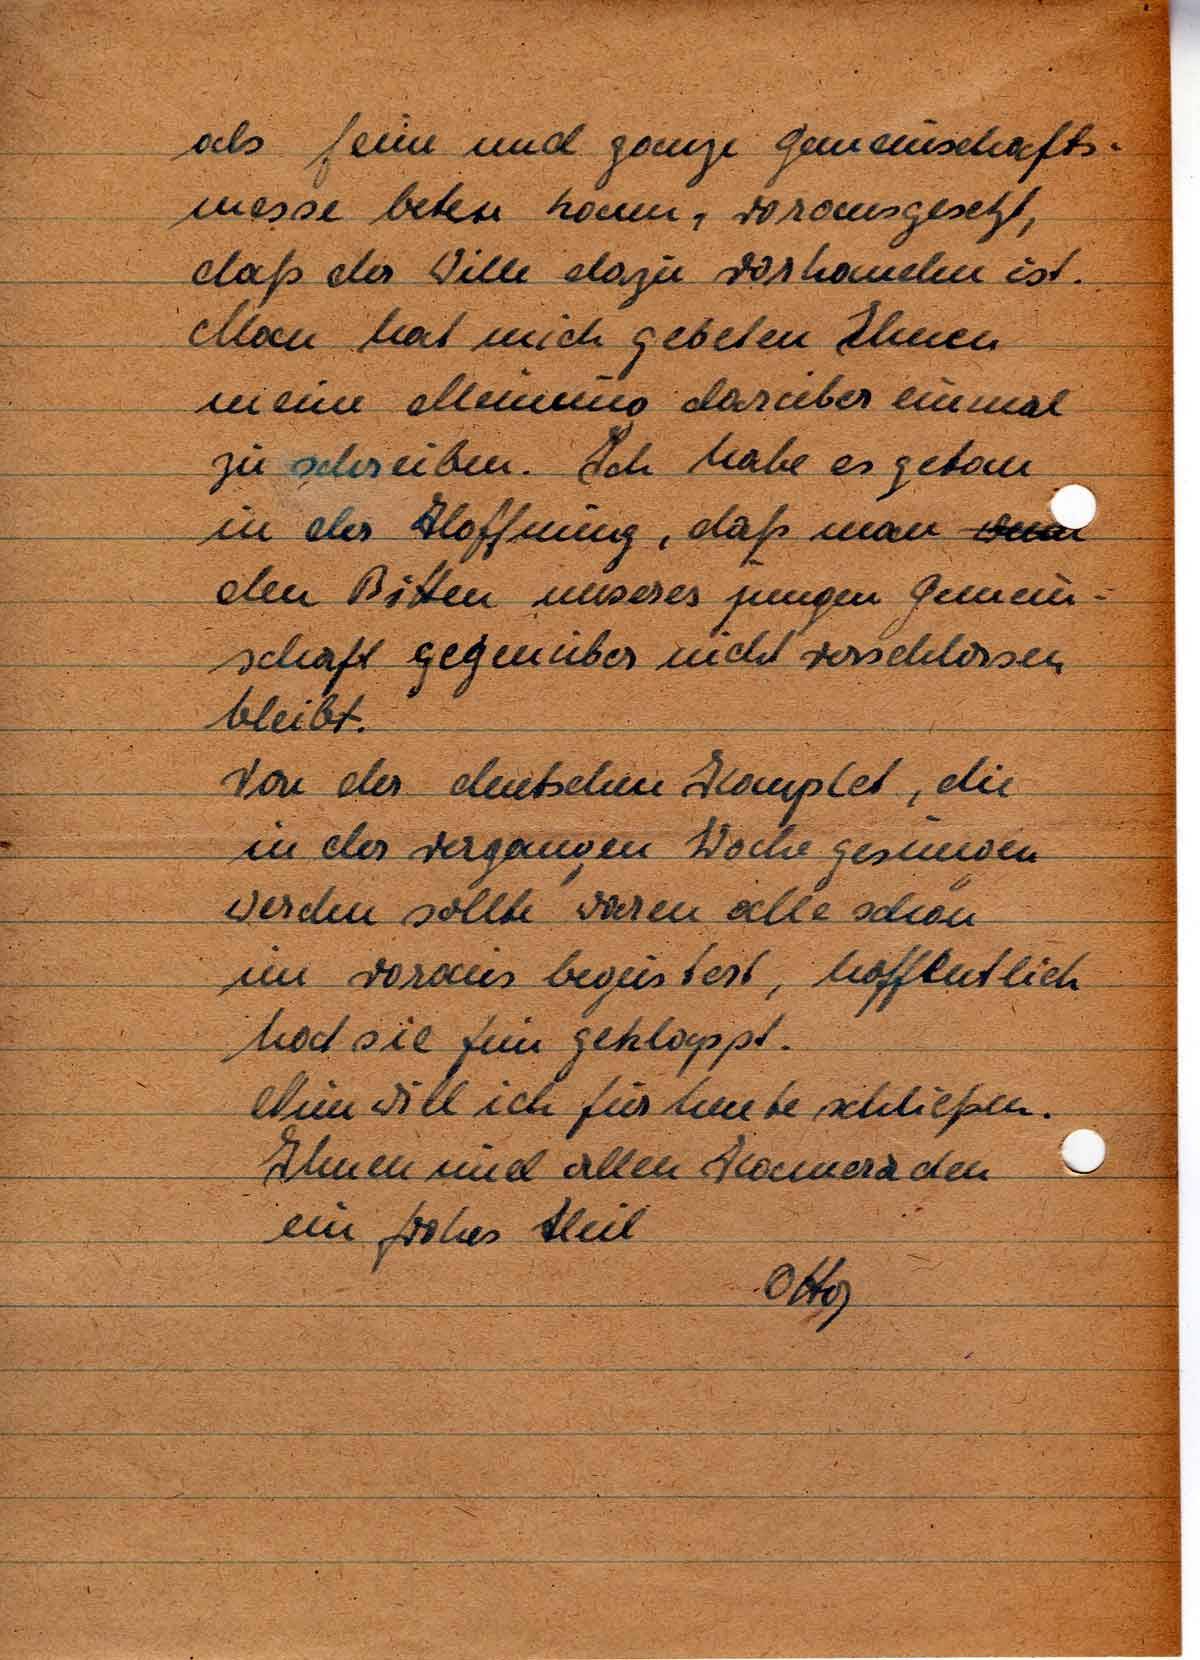 als feine und ganze Gemeinschafts-
messe beten kann, vorausgesetzt,
daß der Wille dazu vorhanden ist.
Man hat mich gebeten Ihnen
meine Meinung darüber einmal
zu schreiben. Ich habe es getan
in der Hoffnung, daß man
den Bitten unserer jungen Gemein-
schaft gegenüber nicht verschlossen
bleibt.
Von der deutschen Komplet, die
in der vergangen Woche gesungen
werden sollte waren alle schon
im voraus begeistert, hoffentlich
hat sie fein geklappt.
Nun will ich für heute schließen.
Ihnen und allen Kameraden
ein frohes Heil
Otto